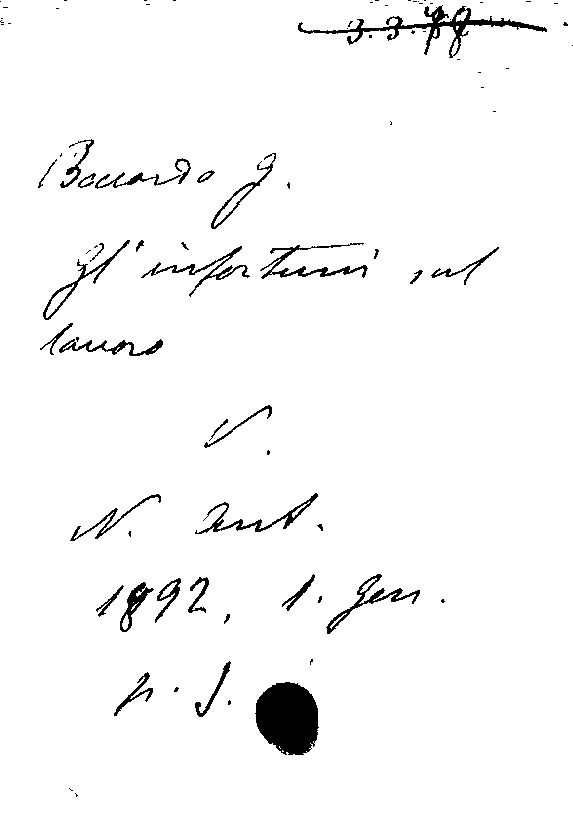 3.3.78
Boccardo G.
Gl'infortuni sul
lavoro
V.
N. Ant.
1892, 1. Gen.
p. 5.